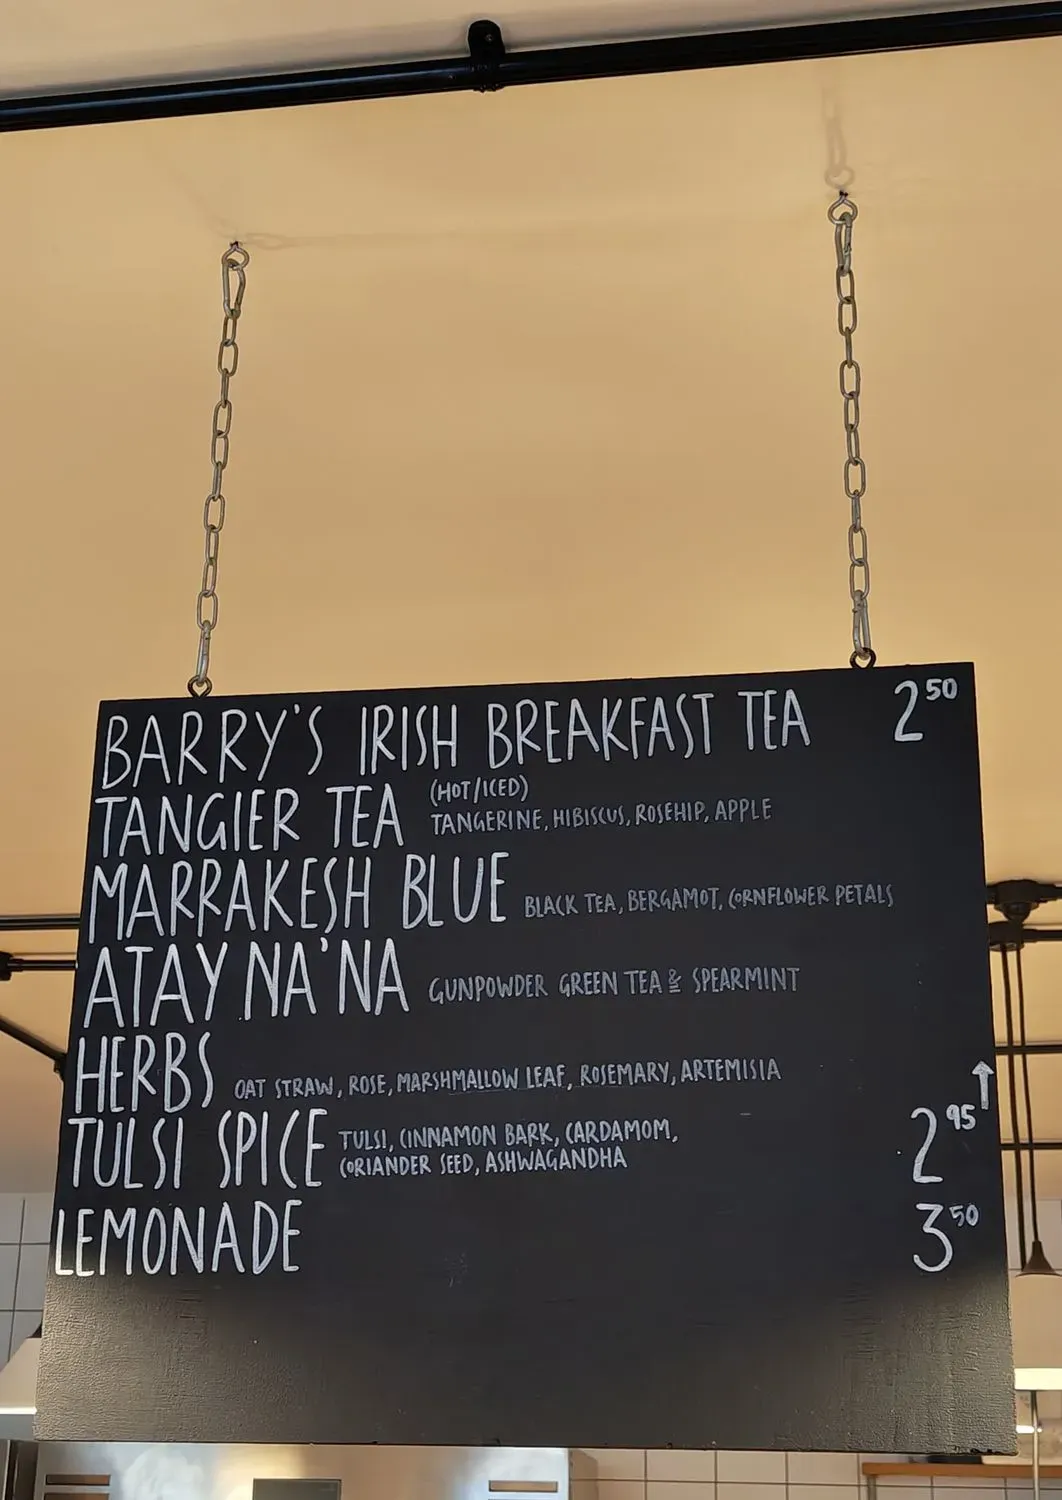 BARRY'S IRISH BREAKFAST TEA 2 50
TANGIER TEA (HOT/ICED)
TANGERINE, HIBISCUS, ROSEHIP, APPLE
MARRAKESH BLUE BLACK TEA, BERGAMOT, CORNFLOWER PETALS
ATAY NA'NA GUNPOWDER GREEN TEA & SPEARMINT
HERBS OAT STRAW, ROSE, MARSHMALLOW LEAF, ROSEMARY, ARTEMISIA ↑
TULSI SPICE TULSI, CINNAMON BARK, CARDAMOM, 2 95
CORIANDER SEED, ASHWAGANDHA
LEMONADE 3 50